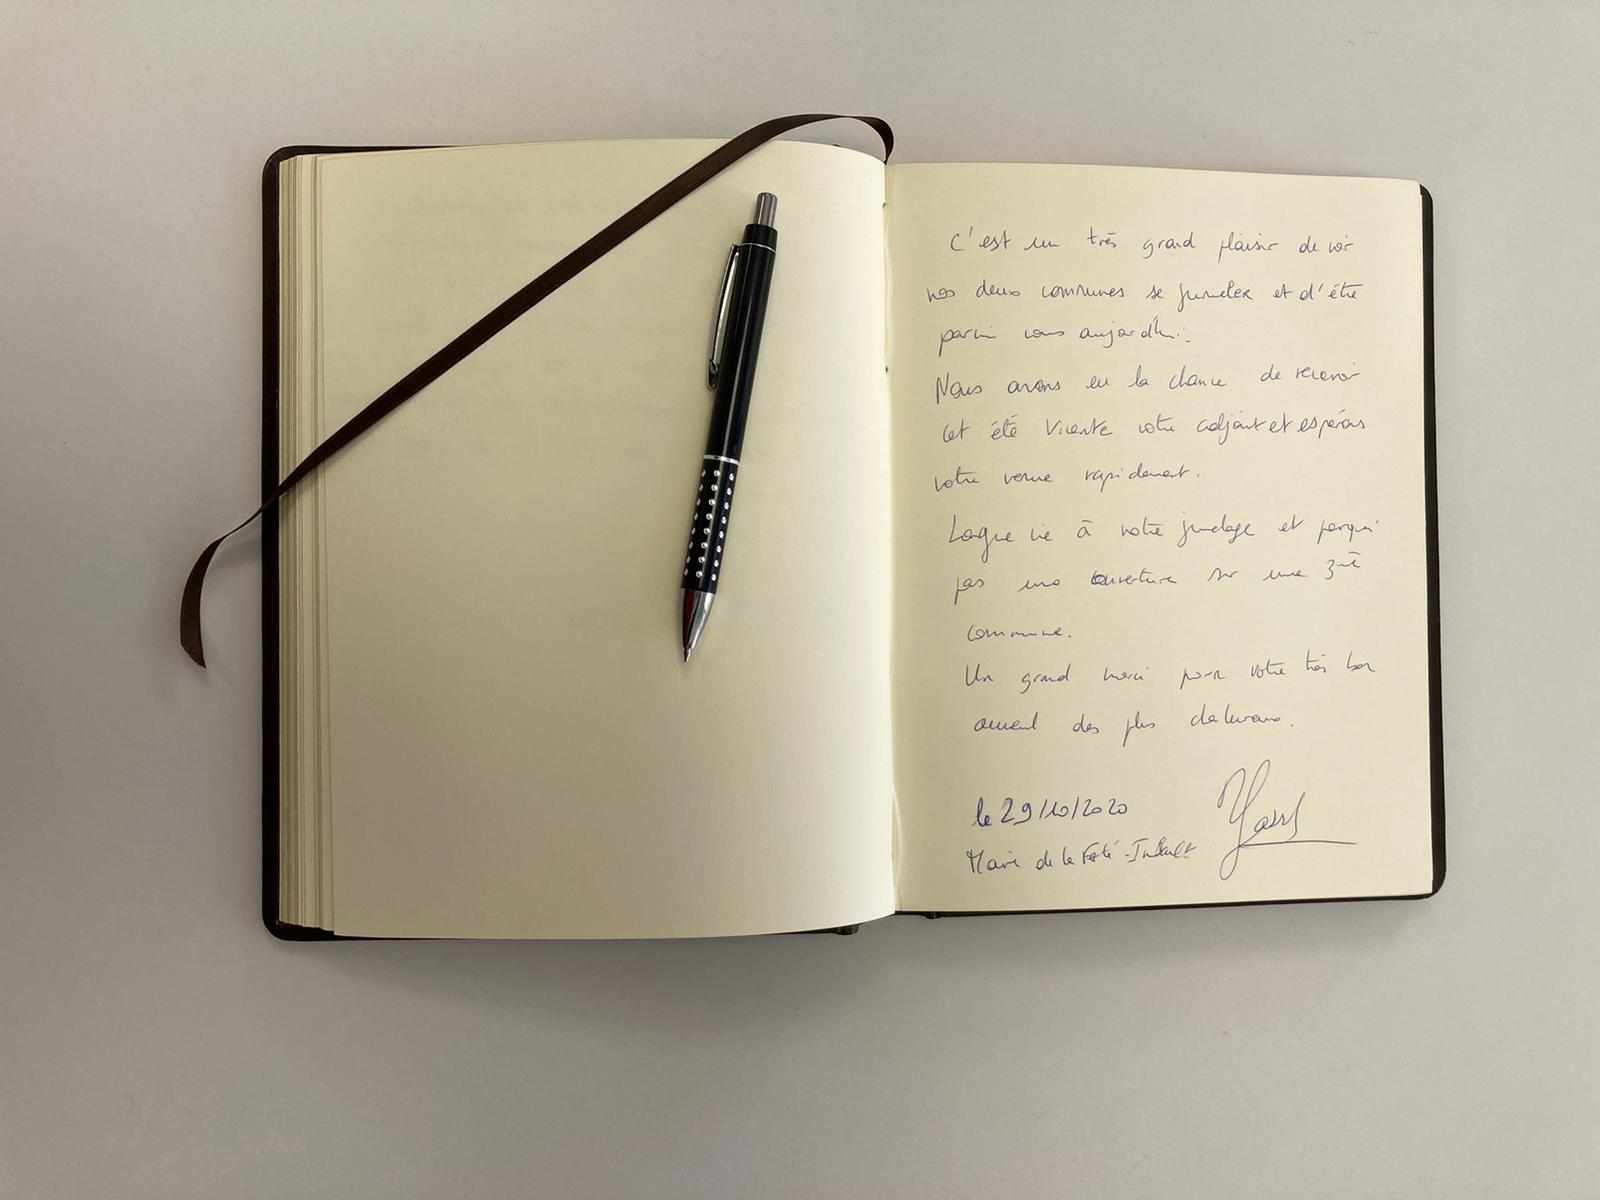 C'est un très grand plaisir de voir
nos deux communes se jumeler et d'être
parmi vous aujourd'hui.
Nous avons eu la chance de recevoir
cet été Vicente votre adjoint et espérons
votre venue rapidement.
Longue vie à notre jumelage et pourquoi
pas une ouverture sur une 3me
commune.
Un grand merci pour votre très bon
accueil des plus chaleureux.
le 29/10/2020
Maire de la Ferté-Imbault